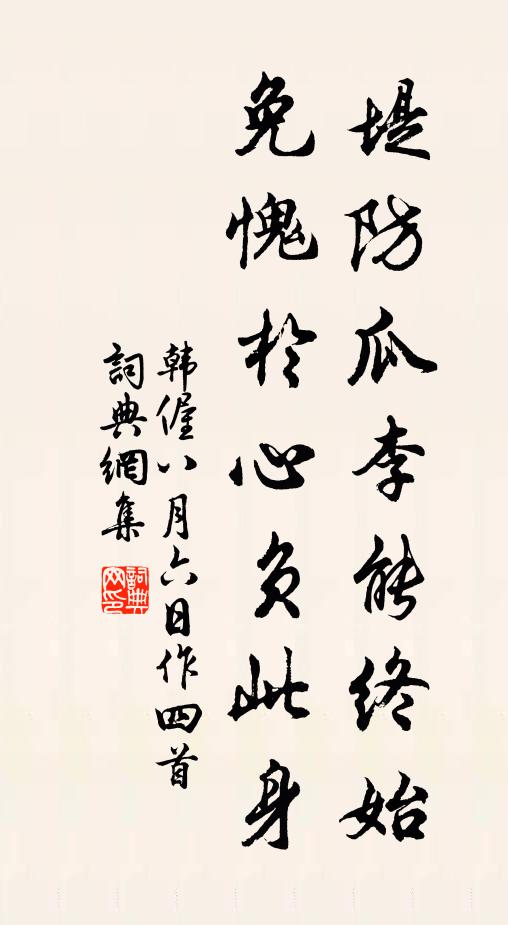 堤防瓜李能终始
免愧於心负此身
韩偓八月六日作四首
詞典網集
詞典网印